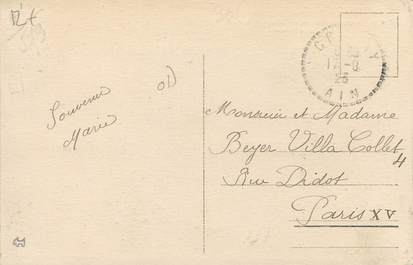 Souvenir
Marie
AIN
Monsieur et Madame
Beyer Villa Collet
4
Rue Didot
Paris XV